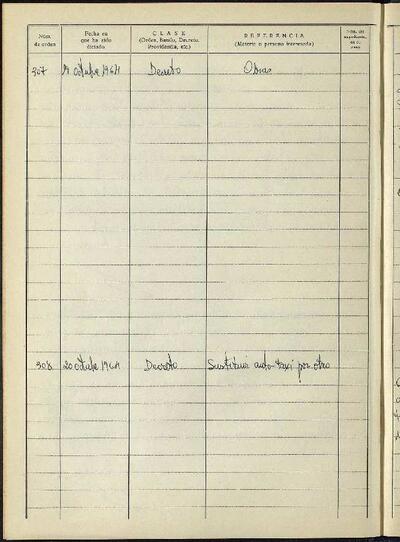 Núm. de orden
Fecha en que ha sido dictado
CLASE (Orden, Bando, Decreto, Providencia, etc.)
REFERENCIA (Materia o persona interesada)
307 19 octubre 1964 Decreto Obras
308 20 octubre 1964 Decreto Sustituir auto-taxi por otro